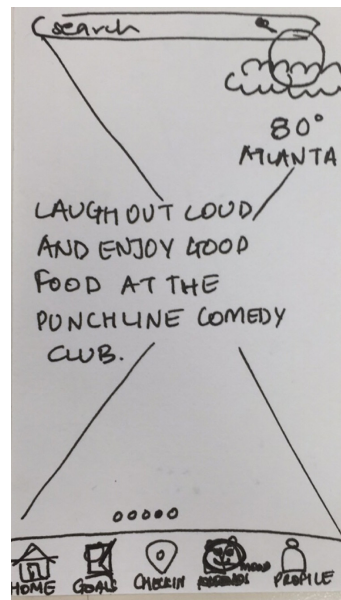 search
80°
ATLANTA
LAUGH OUT LOUD
AND ENJOY GOOD
FOOD AT THE
PUNCHLINE COMEDY
CLUB.
HOME GOALS CHECKIN MOOD PROFILE